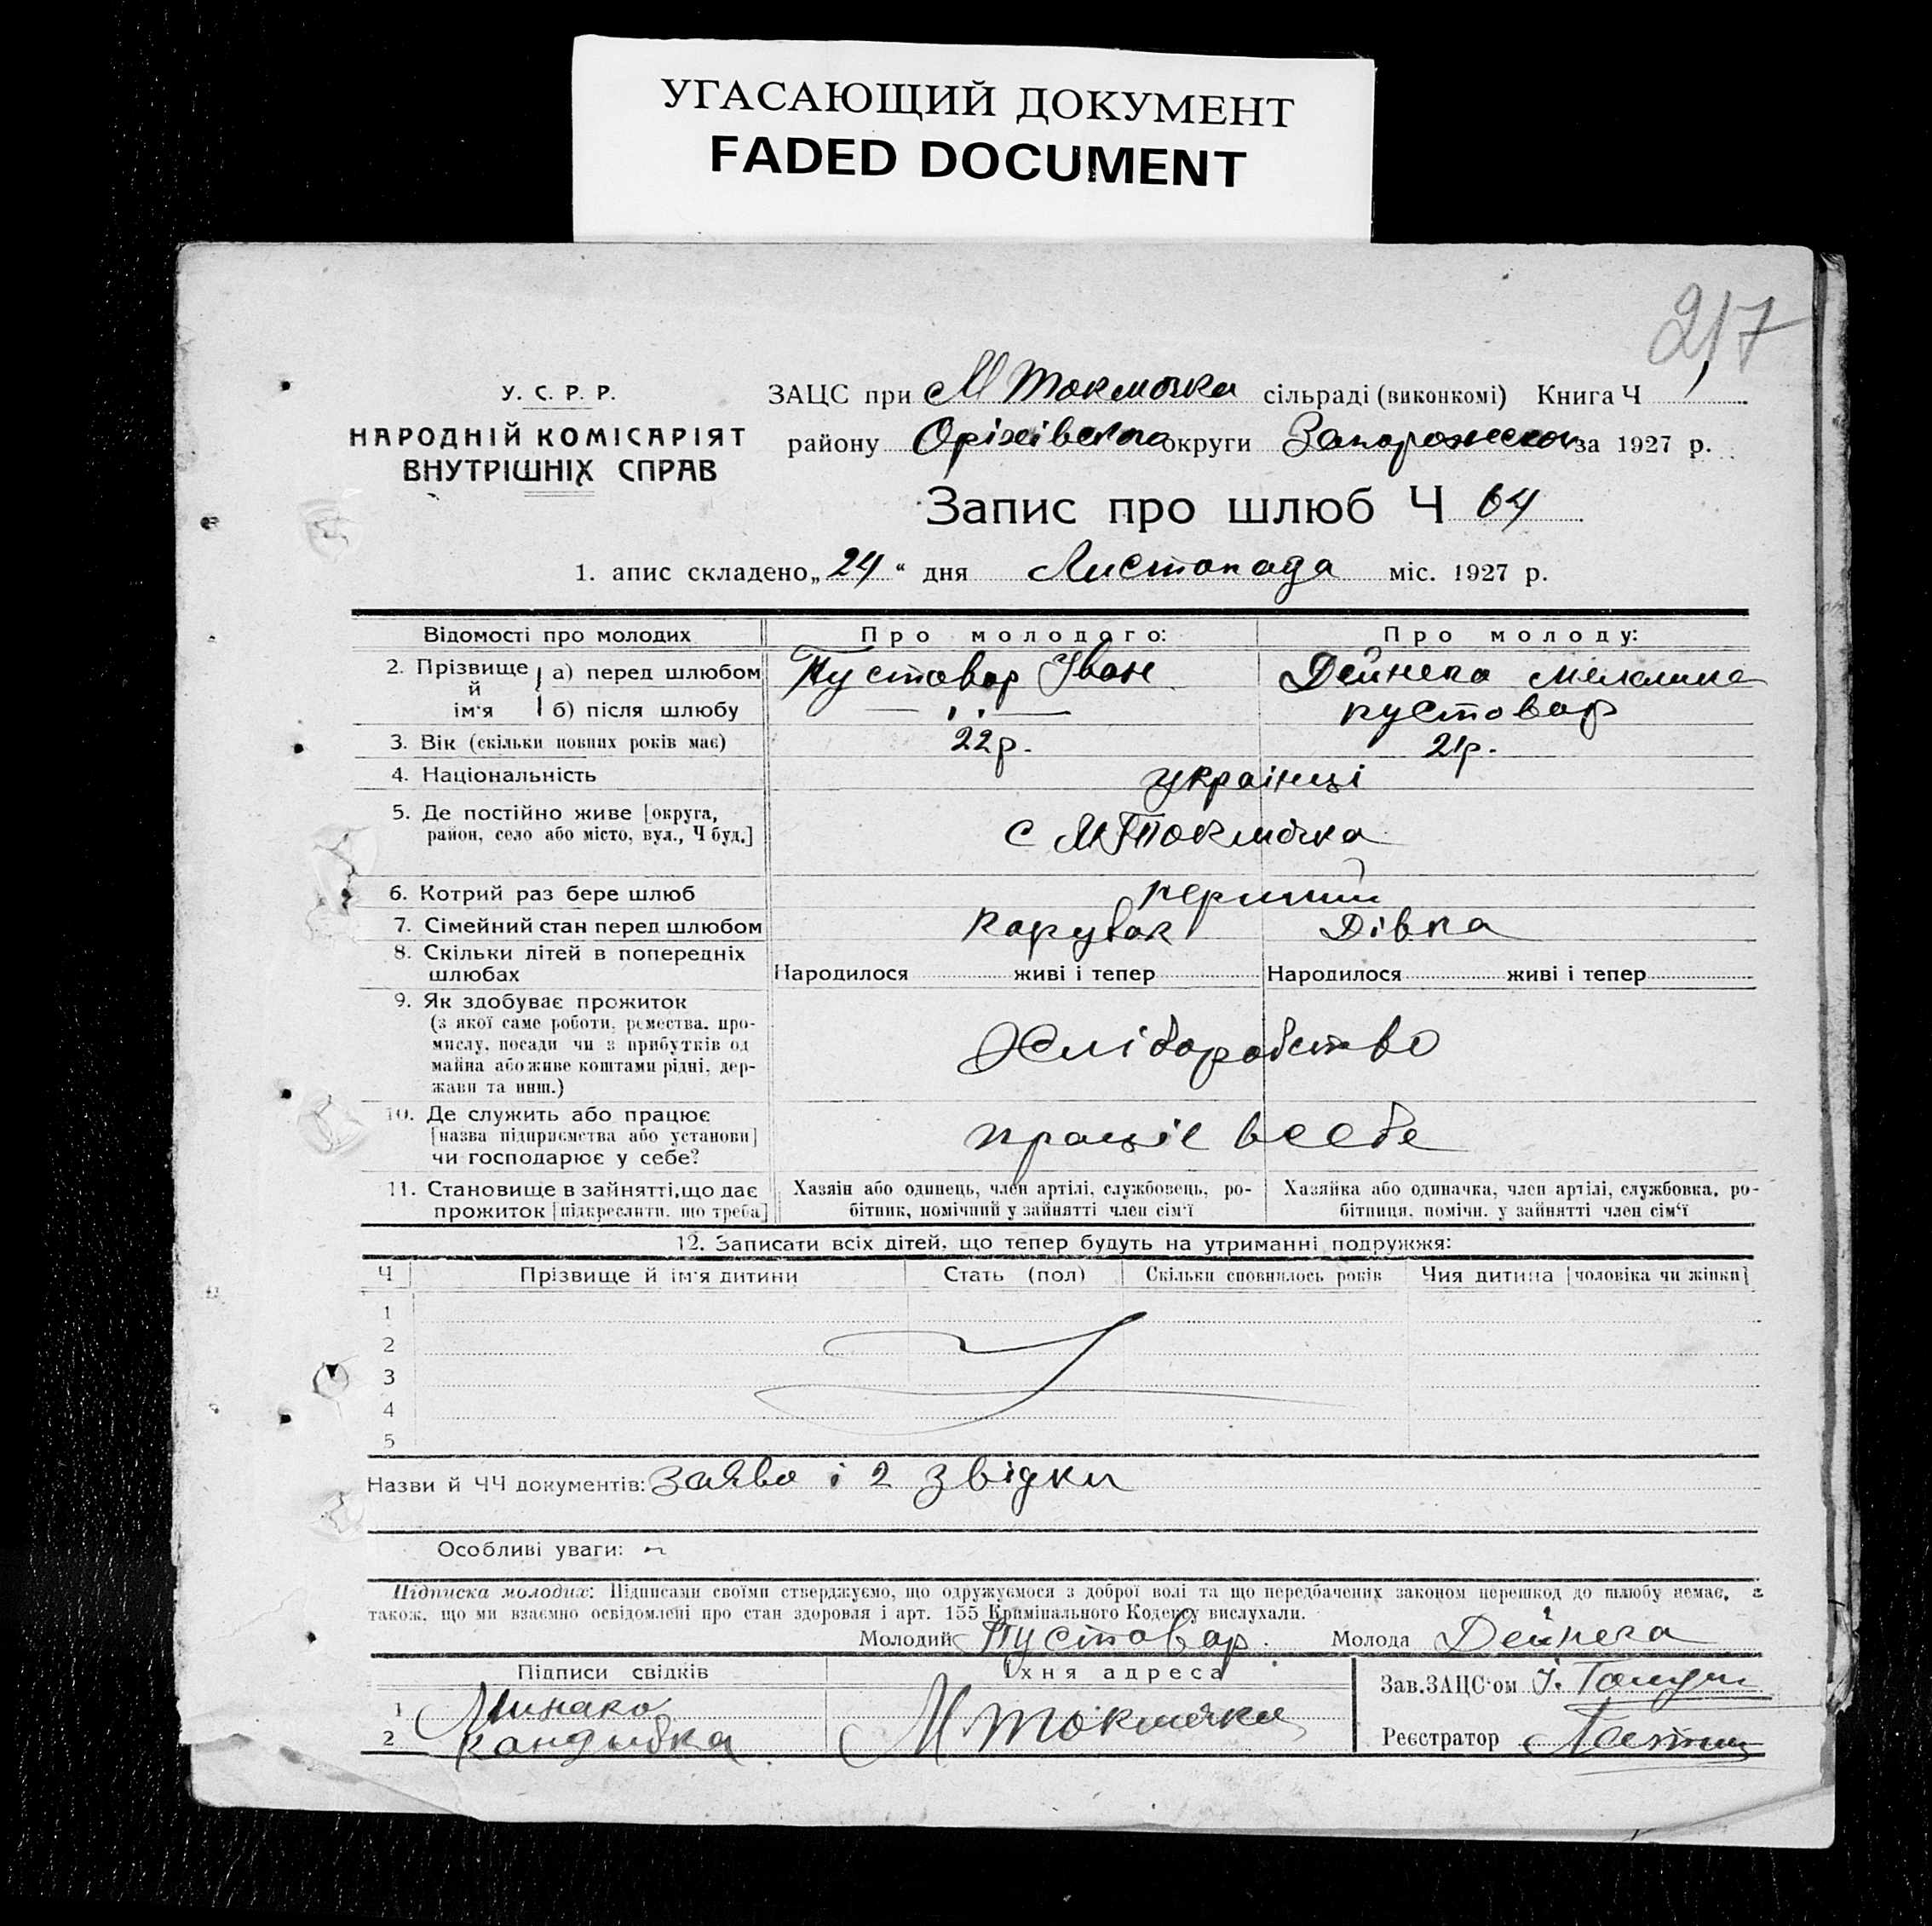 УГАСАЮЩИЙ ДОКУМЕНТ
FADED DOCUMENT
217
У. С. Р. Р.
НАРОДНІЙ КОМІСАРІЯТ
ВНУТРІШНІХ СПРАВ
ЗАЦС при М Токмачка сільраді (виконкомі) Книга Ч
району Оріхівського округи за 1927 р.
Запис про шлюб Ч 64
1. апис складено „24“ дня Листопада міс. 1927 р.
Відомості про молодих Про молодого: Про молоду:
2. Прізвище й ім'я а) перед шлюбом Пустовар Іван Дейнега
б) після шлюбу —〃— пустовар
3. Вік (скільки повних років має) 22р. 21р.
4. Національність українці
5. Де постійно живе [округа,
район, село або місто, вул., Ч буд.] с М Токмачка
6. Котрий раз бере шлюб перший
7. Сімейний стан перед шлюбом парубок Дівка
8. Скільки дітей в попередніх
шлюбах Народилося живі і тепер Народилося живі і тепер
9. Як здобуває прожиток
(з якої саме роботи, ремества, про-
мислу, посади чи з прибутків од
майна або живе коштами рідні, дер-
жави та инш.) Хліборобство
10. Де служить або працює
[назва підприємства або установи]
чи господарює у себе? праціє всебе
11. Становище в зайнятті, що дає
прожиток [підкреслити, що треба]
Хазяін або одинець, член артілі, службовець, ро-
бітник, помічний у зайнятті член сім'ї
Хазяйка або одиначка, член артілі, службовка, ро-
бітниця, помічн. у зайнятті член сім'ї
12. Записати всіх дітей, що тепер будуть на утриманні подружжя:
Ч Прізвище й ім'я дитини Стать (пол) Скільки сповнилось років Чия дитина [чоловіка чи жінки]
1
2
3
4
5
Назви й ЧЧ документів: Заява і 2 звідки
Особливі уваги:
Підписка молодих: Підписами своїми стверджуємо, що одружуємося з доброї волі та що передбачених законом перешкод до шлюбу немає, а
також, що ми взаємно освідомлені про стан здоровля і арт. 155 Кримінального Кодексу вислухали.
Молодий Пустовар. Молода Дейнега
Підписи свідків Їхня адреса Зав. ЗАЦС'ом І.
1 Минако
2 Кандибка М Токмачка Реєстратор